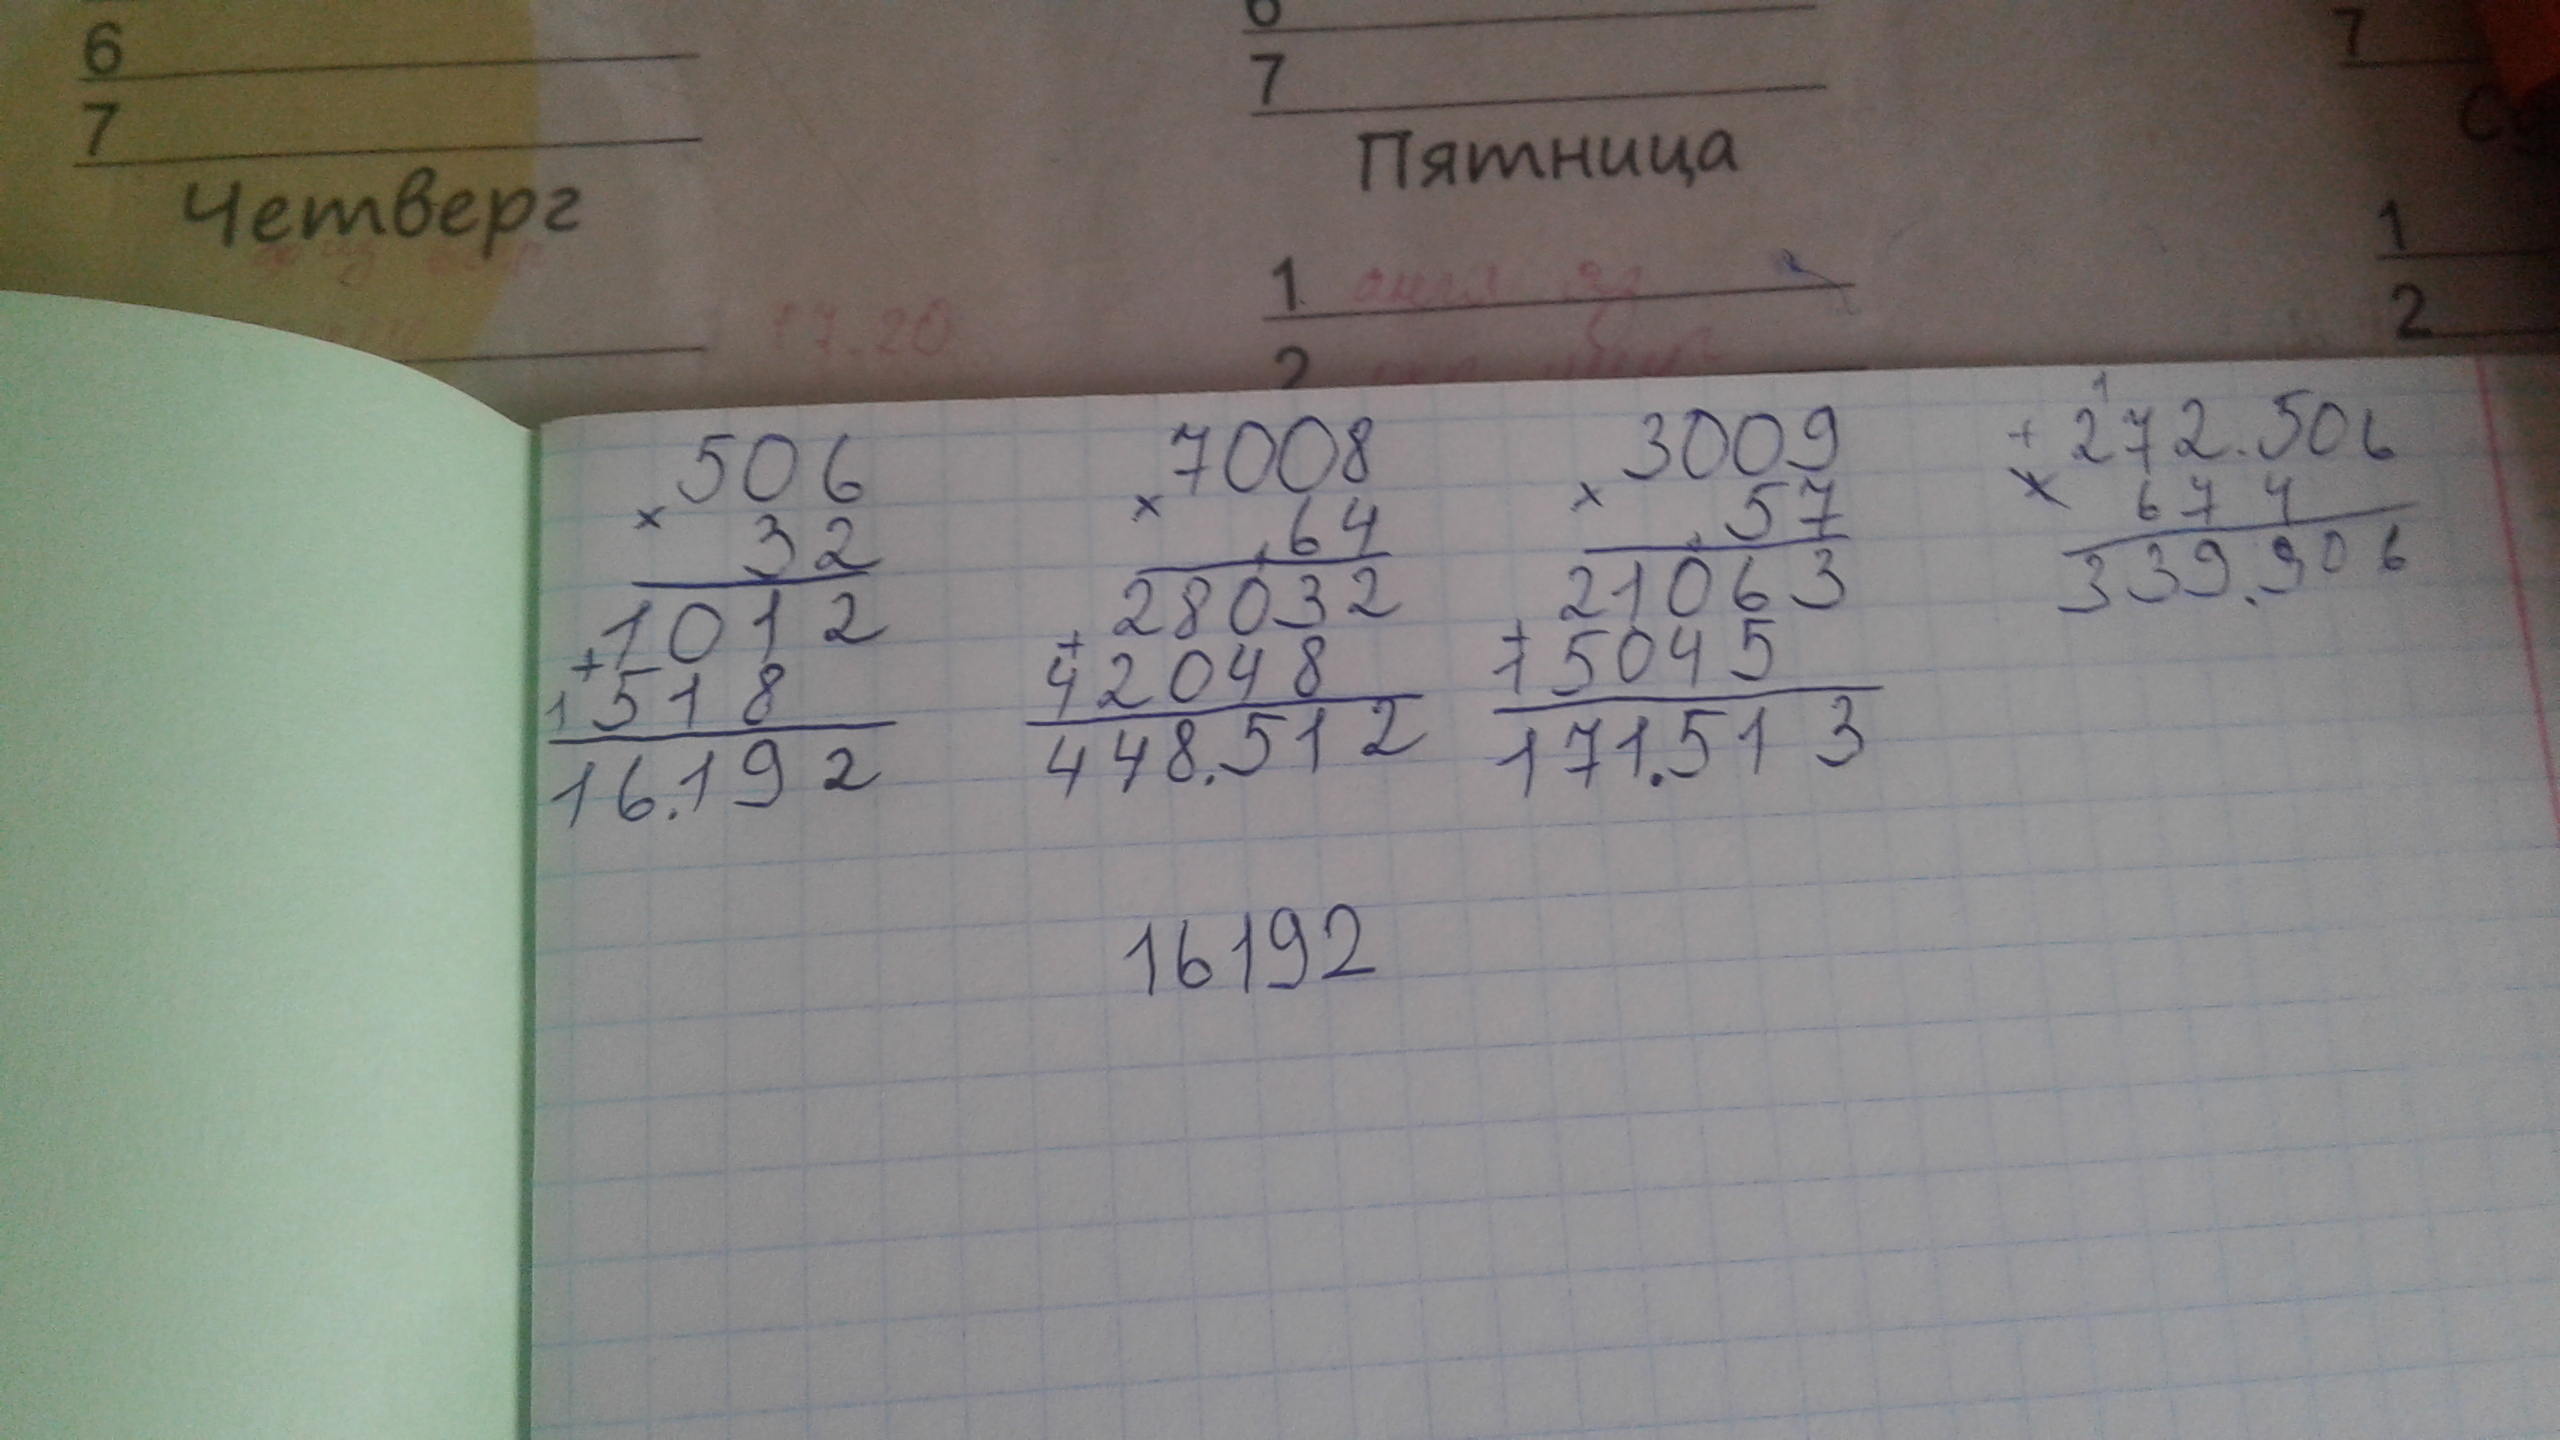 6
7
Четверг
17.20
6
7
Пятница
1
2
7
1
2
506
× 32
1012
+
1518
16.192
7008
× 64
28032
+
42048
448.512
3009
× 57
21063
+
15045
171.513
1
+ 272.506
× 674
339.906
16192